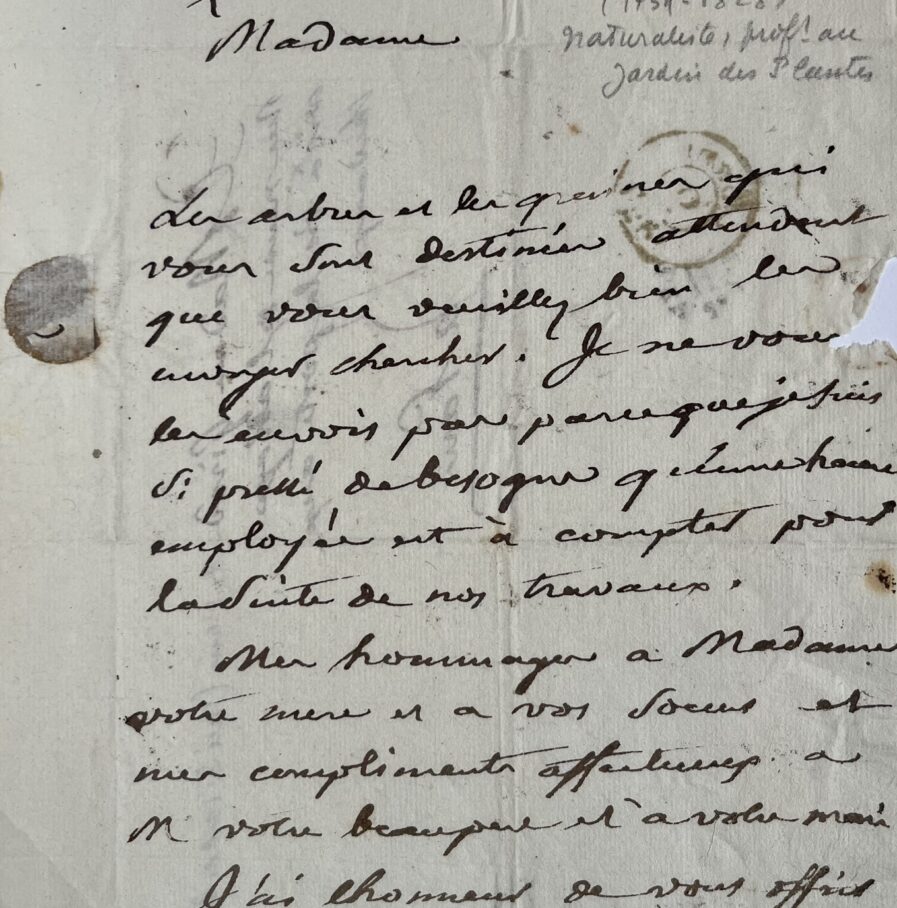 naturaliste, profr au
Jardin des Plantes
Madame
Les arbres et les graines qui
vous sont destinées attendent
que vous veuillez bien les
envoyer chercher. Je ne vous
les envois pas parceque je suis
si pressé de besogne qu'une
employée est à compter pour
la suite de nos travaux.
Mes hommages a Madame
votre mere et a vos soeurs et
mes compliments affectueux a
M votre beaupere et à votre mari
J'ai lhonneur de vous offrir